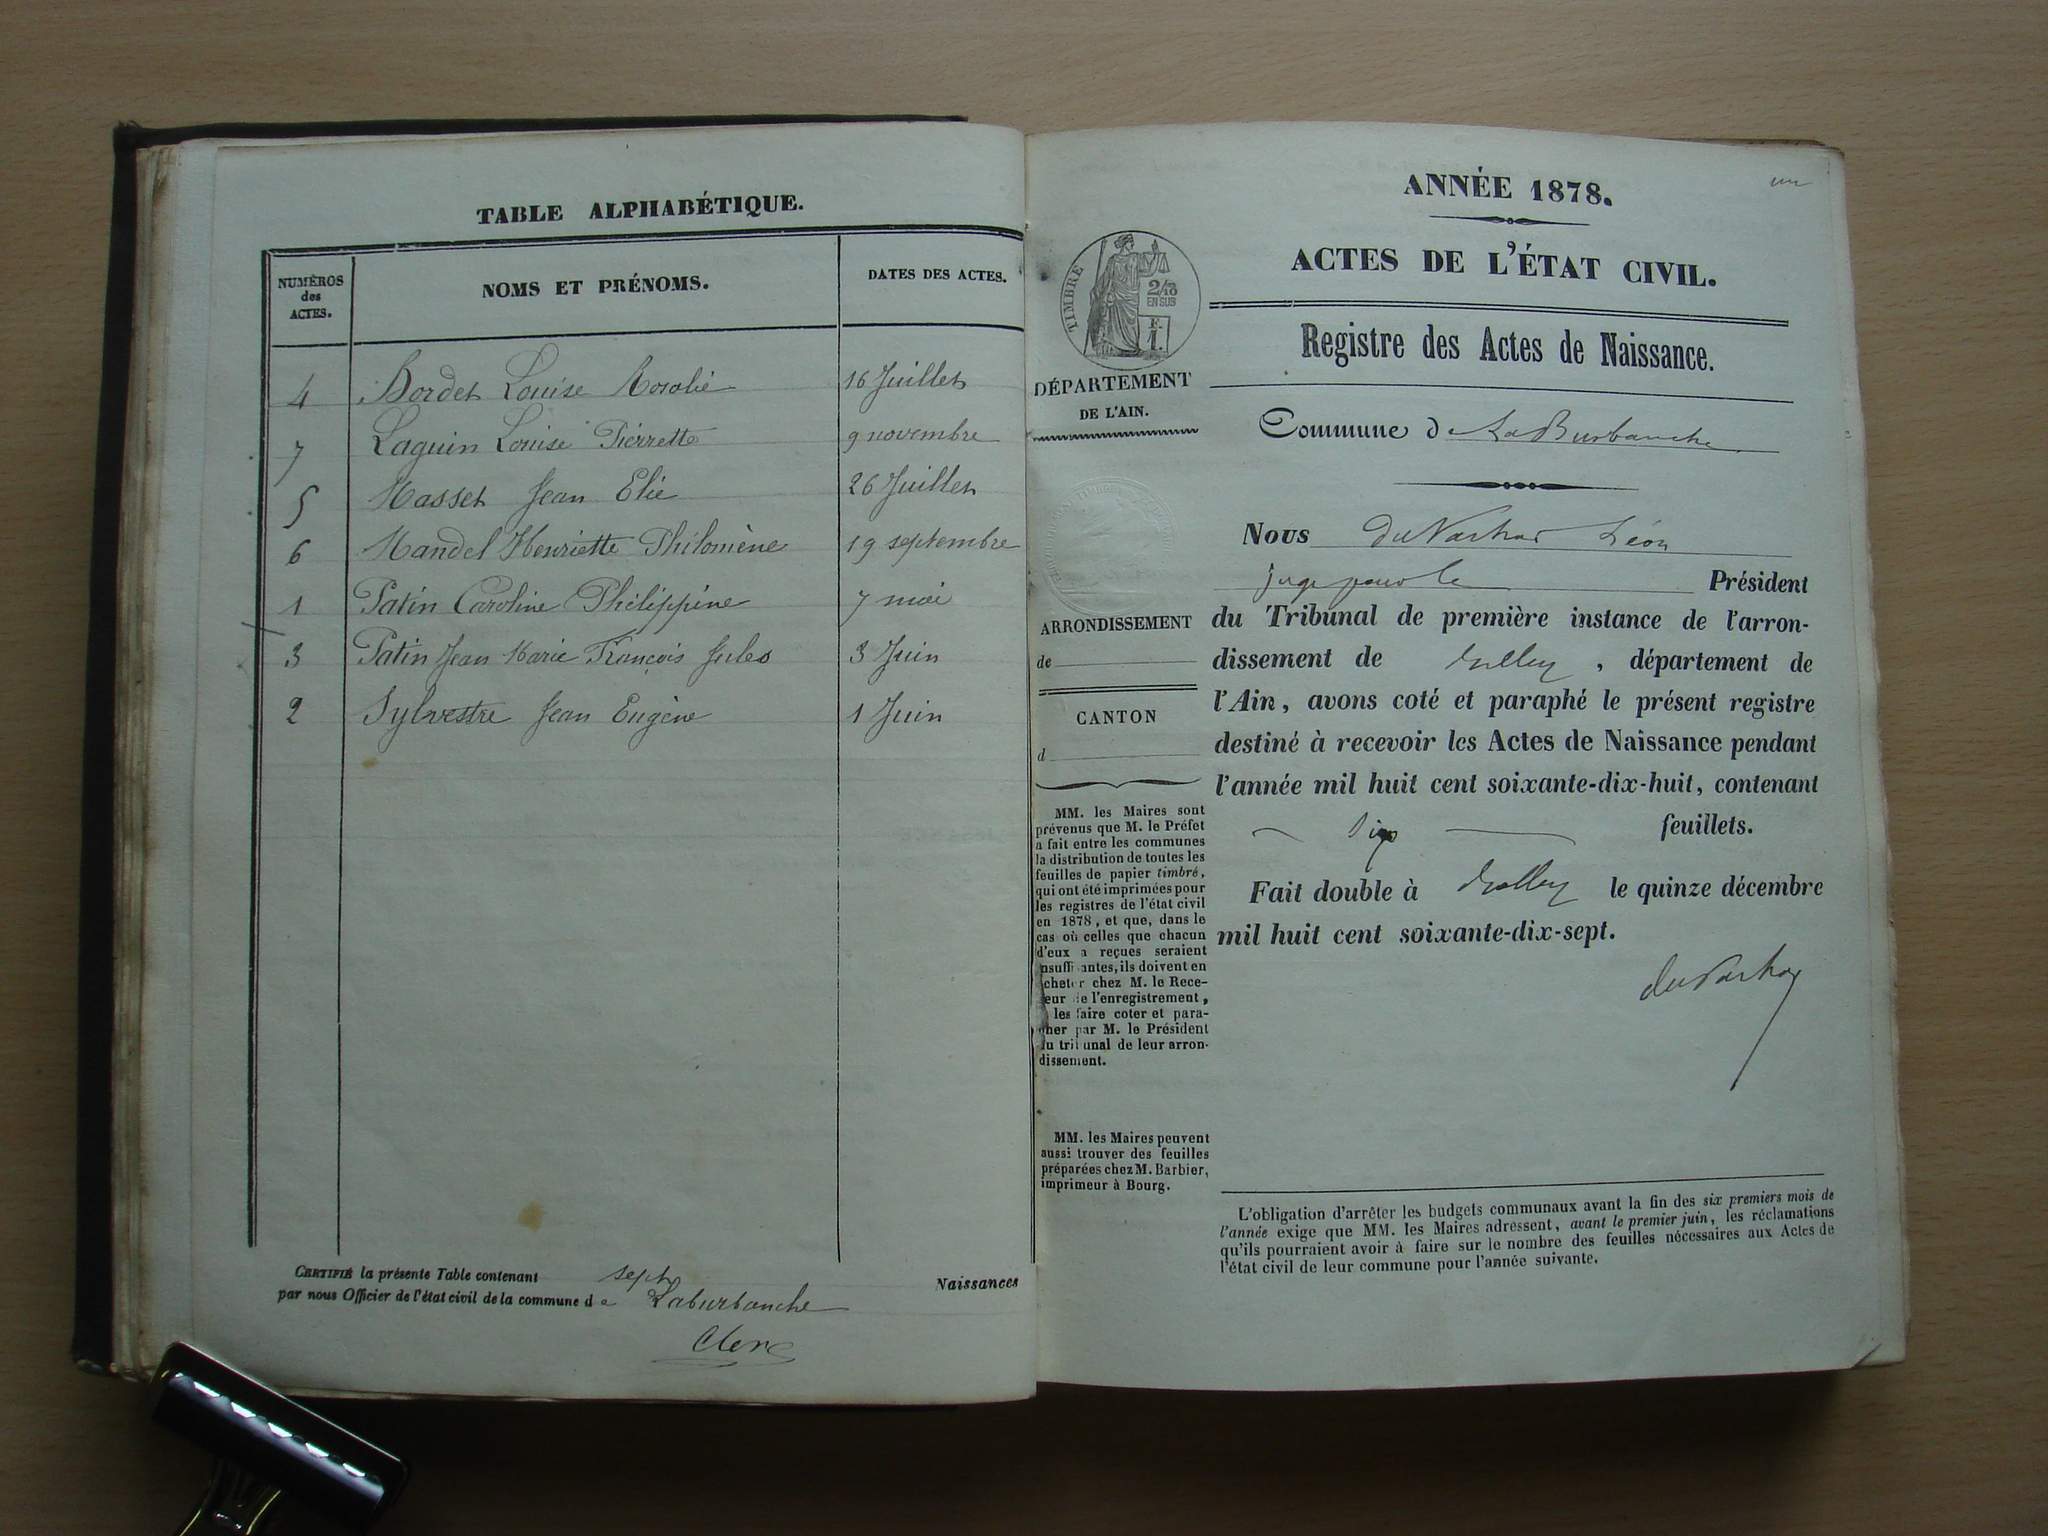 TABLE ALPHABÉTIQUE.
NUMÉROS des ACTES.
NOMS ET PRÉNOMS.
DATES DES ACTES.
4 Bordet Louise Rosalie 16 Juillet
7 Laguin Louise Pierrette 9 novembre
5 Masset Jean Elie 26 Juillet
6 Mandel Henriette Philomène 19 septembre
1 Patin Caroline Philippine 7 mai
3 Patin Jean Marie François Jules 3 Juin
2 Sylvestre Jean Eugène 1 Juin
CERTIFIÉ la présente Table contenant sept Naissances
par nous Officier de l'état civil de la commune de Laburbanche
Clerc
un
ANNÉE 1878.
ACTES DE L'ÉTAT CIVIL.
Registre des Actes de Naissance.
TIMBRE
2/10
EN SUS
F.
1.
DÉPARTEMENT
DE L'AIN.
Commune de La Burbanche
Nous Léon
juge pour le Président
du Tribunal de première instance de l'arron-
dissement de Belley, département de
l'Ain, avons coté et paraphé le présent registre
destiné à recevoir les Actes de Naissance pendant
l'année mil huit cent soixante-dix-huit, contenant
six feuillets.
Fait double à Belley le quinze décembre
mil huit cent soixante-dix-sept.
ARRONDISSEMENT
de
CANTON
d
MM. les Maires sont
prévenus que M. le Préfet
a fait entre les communes
la distribution de toutes les
feuilles de papier timbré,
qui ont été imprimées pour
les registres de l'état civil
en 1878, et que, dans le
cas où celles que chacun
d'eux a reçues seraient
insuffisantes, ils doivent en
acheter chez M. le Rece-
veur de l'enregistrement,
les faire coter et para-
pher par M. le Président
du tribunal de leur arron-
dissement.
MM. les Maires peuvent
aussi trouver des feuilles
préparées chez M. Barbier,
imprimeur à Bourg.
L'obligation d'arrêter les budgets communaux avant la fin des six premiers mois de
l'année exige que MM. les Maires adressent, avant le premier juin, les réclamations
qu'ils pourraient avoir à faire sur le nombre des feuilles nécessaires aux Actes de
l'état civil de leur commune pour l'année suivante.